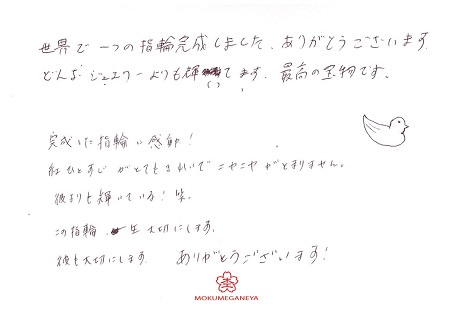 世界で一つの指輪完成しました。ありがとうございます
どんなジュエリーよりも輝いてます。最高の宝物です。
完成した指輪に感動!
紅ひとすじがとてもきれいでニヤニヤがとまりません。
彼よりも輝いている!笑。
この指輪 一生大切にします。
彼も大切にします。 ありがとうございます!
MOKUMEGANEYA